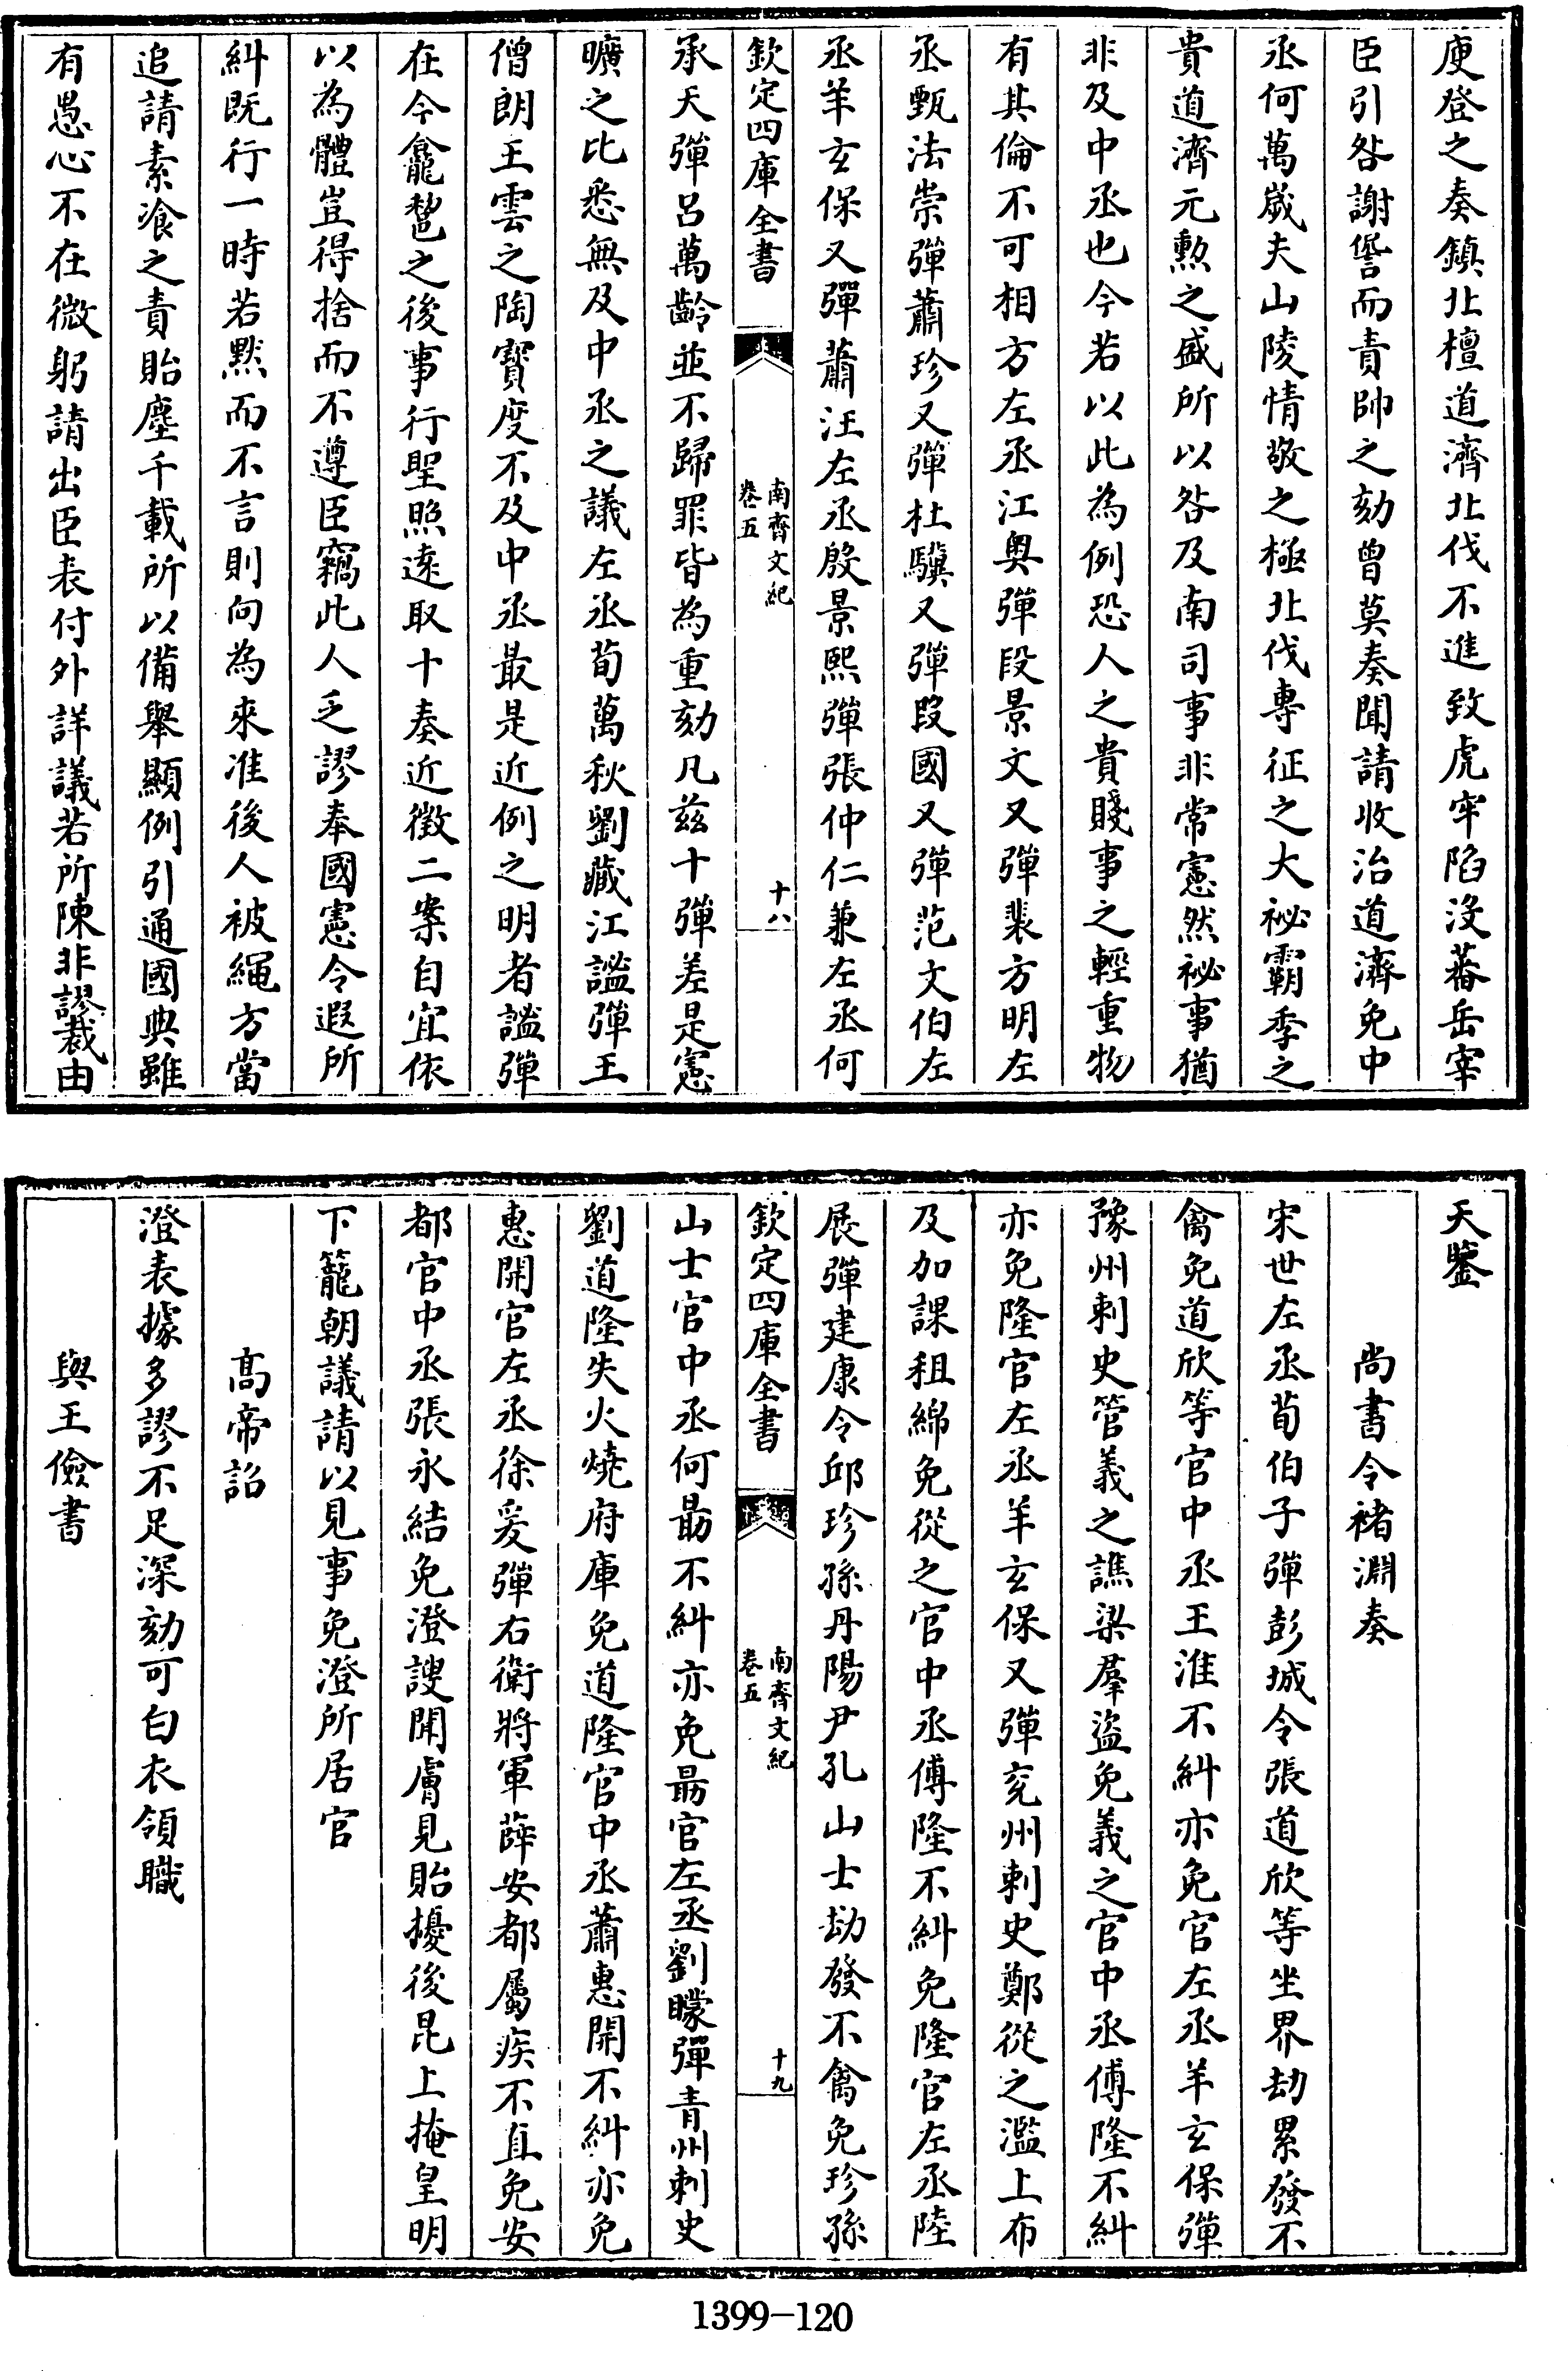 庾登之奏鎮北檀道濟北伐不進致虎牢陷没蕃岳宰
臣引咎謝諐而責帥之劾曾莫奏聞請收治道濟免中
丞何萬歲夫山陵情敬之極北伐專征之大祕霸季之
貴道濟元勲之盛所以咎及南司事非常憲然祕事猶
非及中丞也今若以此為例恐人之貴賤事之輕重物
有其倫不可相方左丞江奥彈段景文又彈裴方明左
丞甄法崇彈蕭珍又彈杜驥又彈段國又彈范文伯左
丞羊玄保又彈蕭汪左丞殷景熙彈張仲仁兼左丞何
欽定四庫全書
南齊文紀
卷五
十八
承天彈呂萬齡並不歸罪皆為重劾凡兹十彈差是憲
曠之比悉無及中丞之議左丞荀萬秋劉藏江謐彈王
僧朗王雲之陶寶度不及中丞最是近例之明者謐彈
在今龕𥠖之後事行聖照遠取十奏近徵二案自宜依
以為體豈得捨而不遵臣竊此人乏謬奉國憲今遐所
糾既行一時若默而不言則向為來准後人被繩方當
追請素飡之責貽塵千載所以備舉顯例引通國典雖
有愚心不在微躬請出臣表付外詳議若所陳非謬裁由
天鑒
尚書令褚淵奏
宋世左丞荀伯子彈彭城令張道欣等坐界劫累發不
禽免道欣等官中丞王淮不糾亦免官左丞羊玄保彈
豫州刺史管義之譙梁羣盗免義之官中丞傅隆不糾
亦免隆官左丞羊玄保又彈兖州刺史鄭從之濫上布
及加課租綿免從之官中丞傅隆不糾免隆官左丞陸
展彈建康令邱珍孫丹陽尹孔山士劫發不禽免珍孫
欽定四庫全書
南齊文紀
卷五
十九
山士官中丞何勗不糾亦免勗官左丞劉矇彈青州刺史
劉道隆失火燒府庫免道隆官中丞蕭惠開不糾亦免
惠開官左丞徐爰彈右衛將軍薛安都屬疾不直免安
都官中丞張永結免澄謏聞膚見貽擾後昆上掩皇明
下籠朝議請以見事免澄所居官
髙帝詔
澄表據多謬不足深劾可白衣領職
與王儉書
1399-120